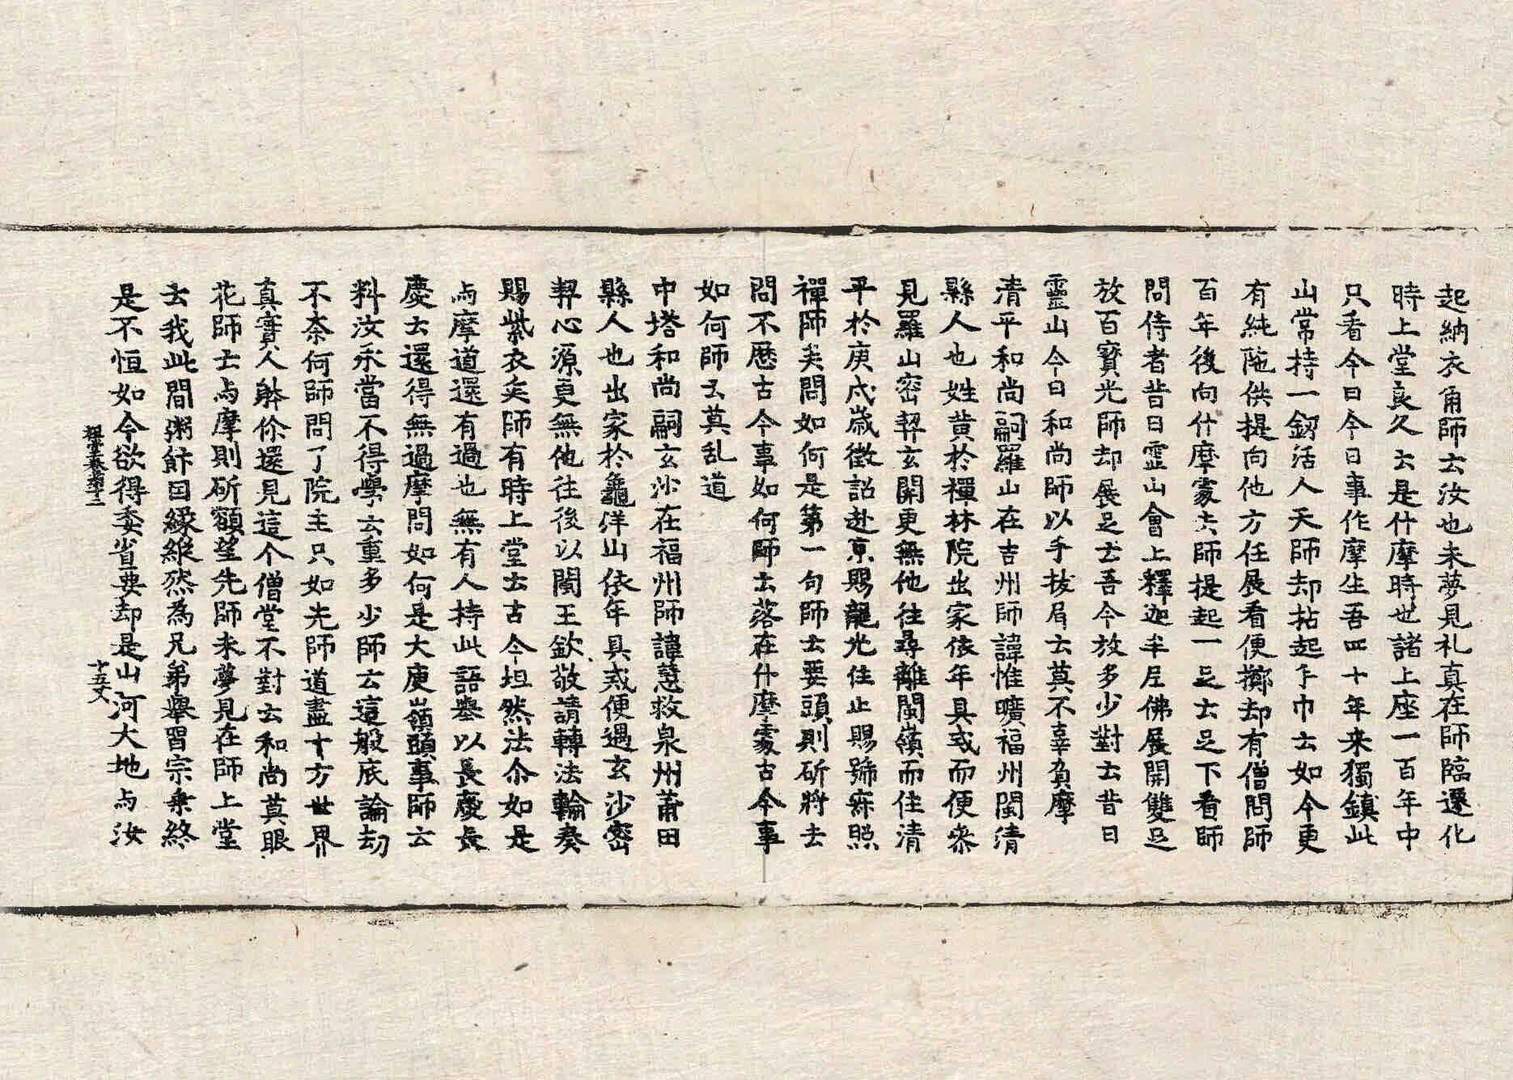 起納衣角師云汝也未夢見礼真在師臨遷化
時上堂良久云是什摩時也諸上座一百年中
只看今日今日事作摩生吾四十年来獨鎮此
山常持一釼活人天師却拈起手巾云如今更
有純陁供提向他方任展看便擲却有僧問師
百年後向什摩處去師提起一足云足下看師
問侍者昔日霊山會上釋迦牟尼佛展開雙足
放百寶光師却展足云吾今放多少對云昔日
霊山今日和尚師以手拔眉云莫不辜負摩
清平和尚嗣羅山在吉州師諱惟曠福州閩清
縣人也姓黄於禪林院出家依年具戒而便叅
見羅山密契玄關更無他往尋離閩嶺而住清
平於庚戌歳徵詔赴京賜龍光住止賜号寂照
禪師矣問如何是第一句師云要頭則斫将去
問不歷古今事如何師云落在什摩處古今事
如何師云莫乱道
中塔和尚嗣玄沙在福州師諱慧救泉州莆田
縣人也出家於龜洋山依年具戒便過玄沙密
契心源更無他往後以閩王欽敬請轉法輪奏
賜紫衣矣師有時上堂云古今坦然法尒如是
与摩道還有過也無有人持此語舉以長慶長
慶云還得無過摩問如何是大庾嶺頭事師云
料汝承當不得學云重多少師云這般底論劫
不奈何師問了院主只如先師道盡十方世界
真實人躰你還見這个僧堂不對云和尚莫眼
花師云与摩則斫額望先師未夢見在師上堂
云我此間粥飰因緣縱然為兄弟舉習宗乗終
是不恒如今欲得委省要却是山河大地与汝
祖堂卷第十二
十五丈